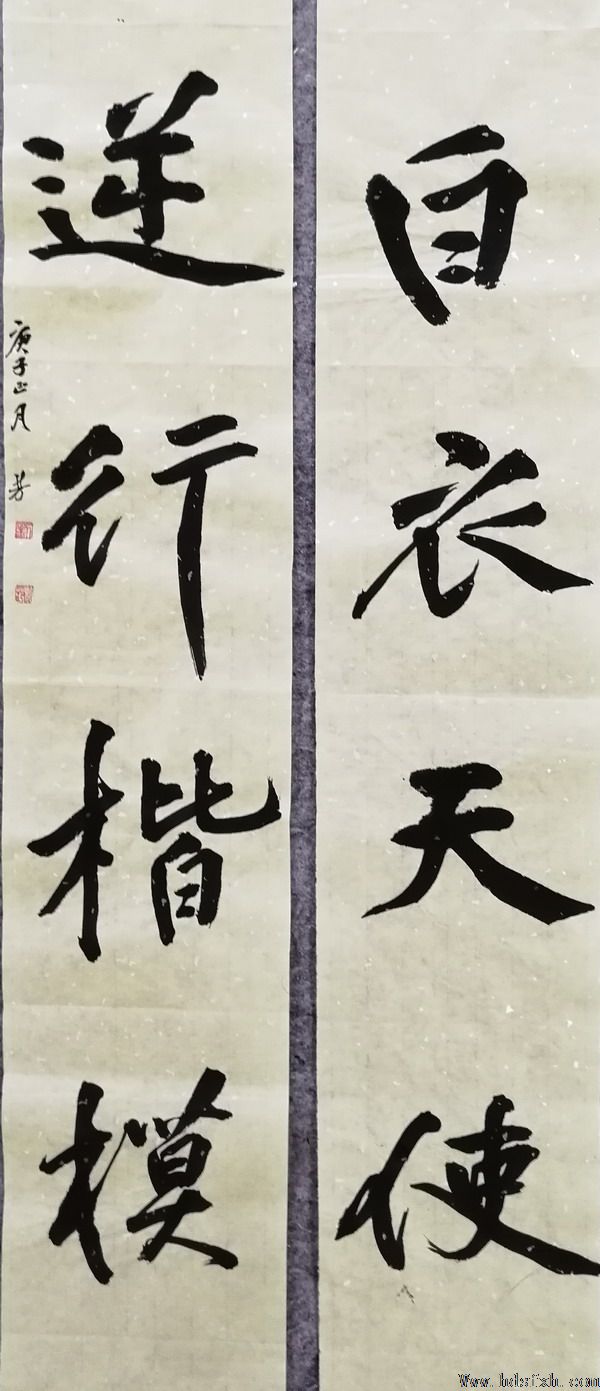 白衣天使
逆行楷模
庚子正月 芳